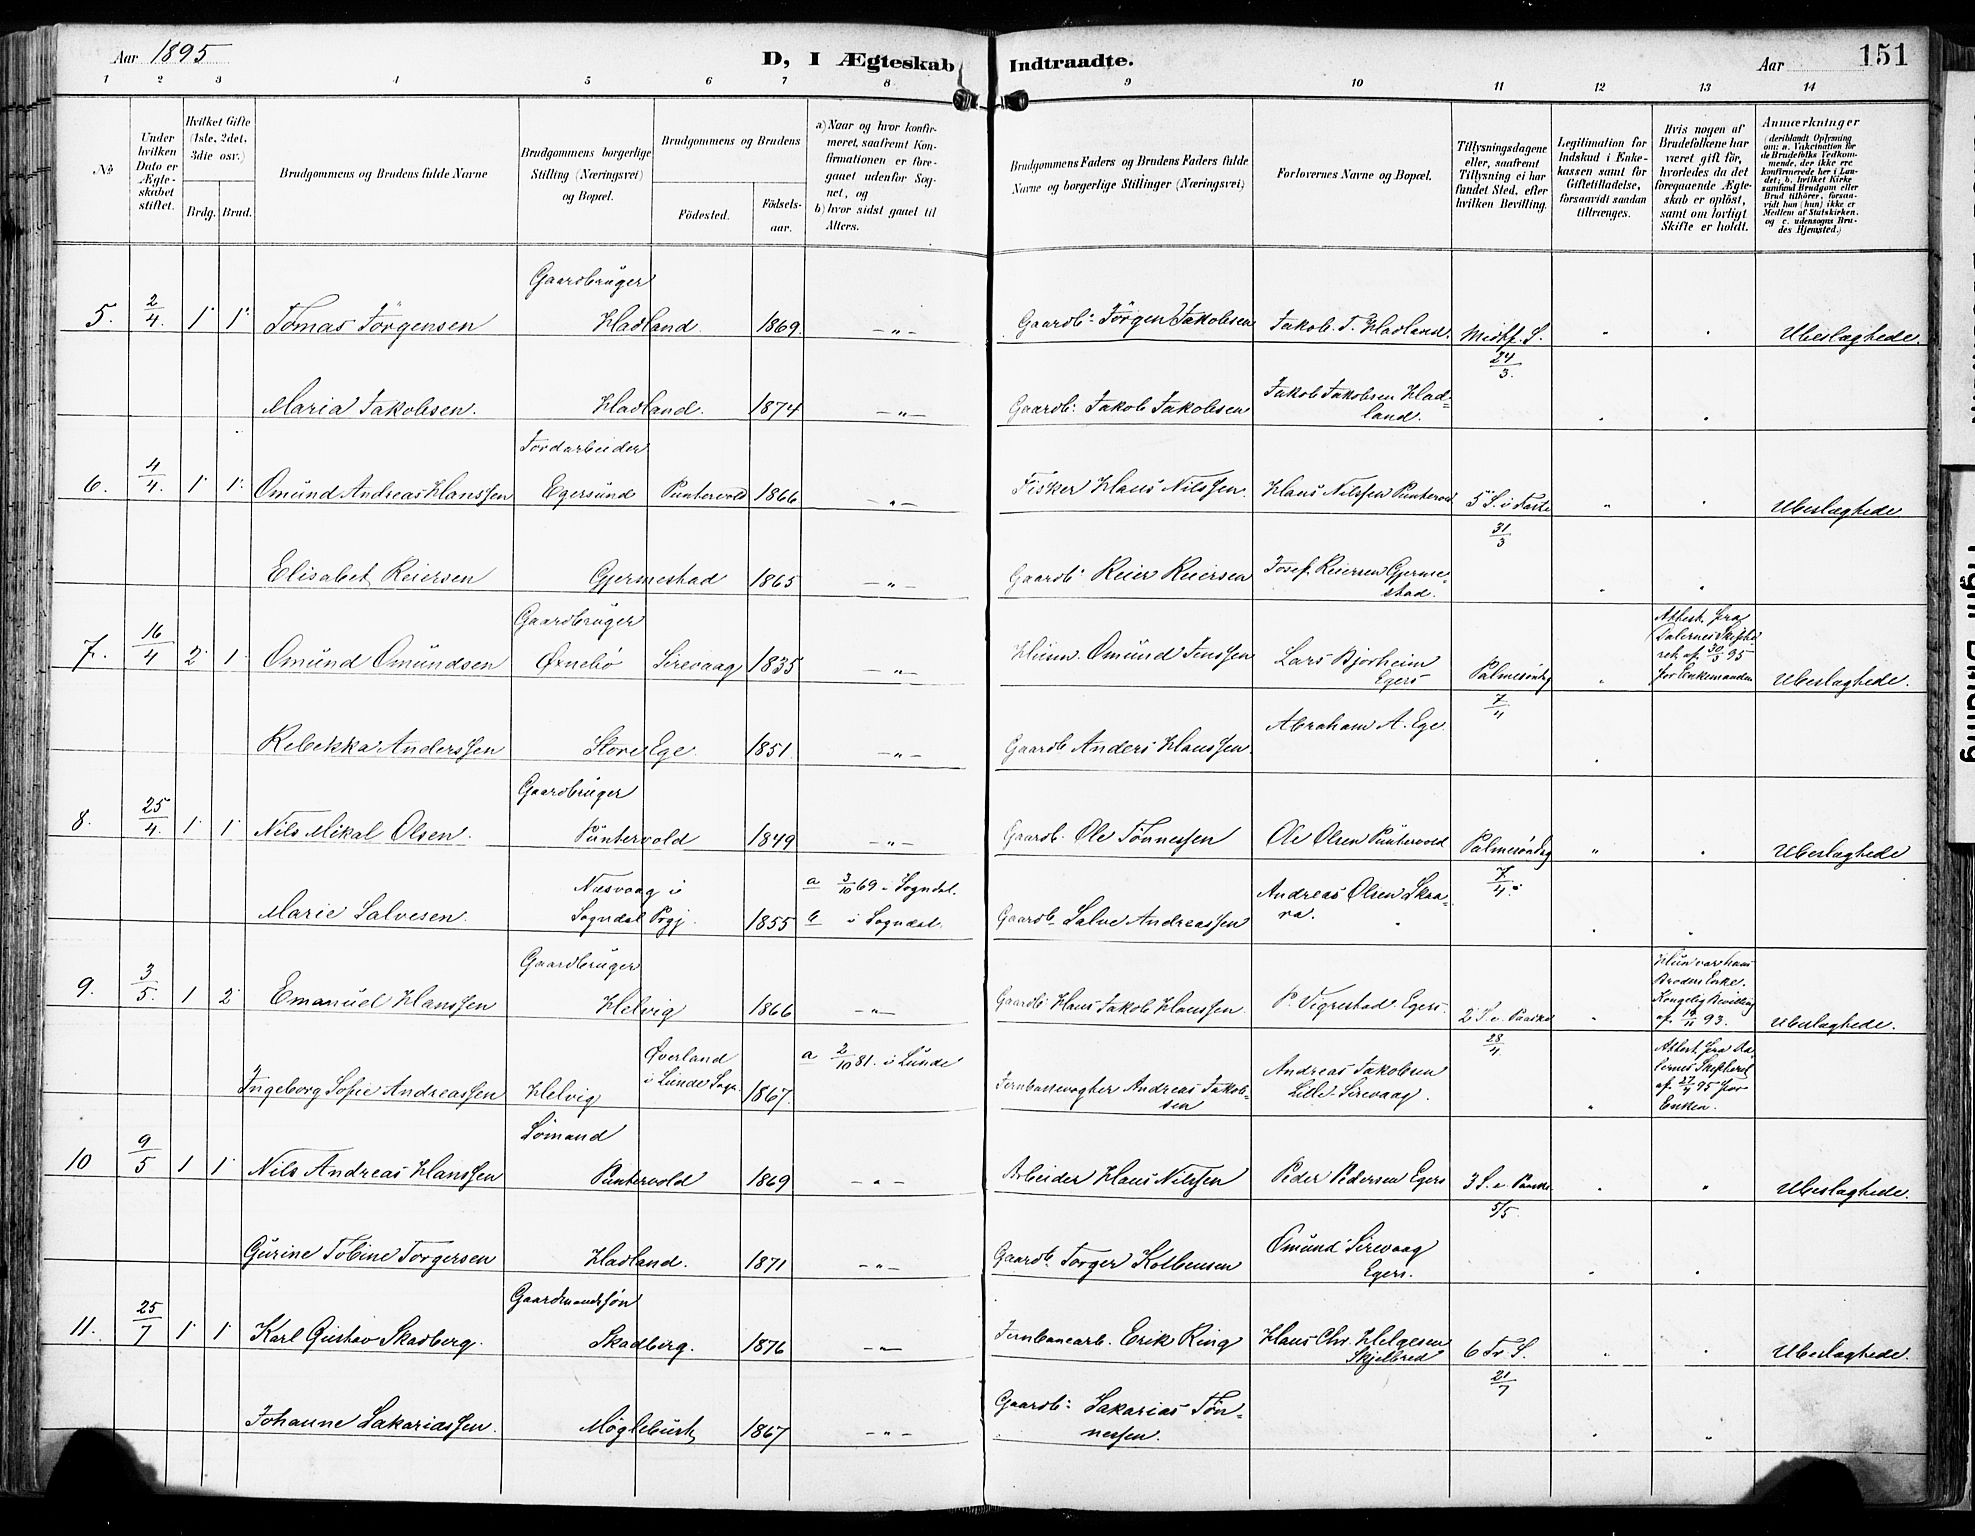 Aar 1895
D, I Ægteskab Indtraadte.
Aar
151
1 2 3 4 5 6 7 8 9 10 11 12 13 14
No
Under hvilken Dato er Ægteskabet stiftet.
Hvilket Gifte (1ste, 2det, 3die osv.)
Brdg. Brud.
Brudgommens og Brudens fulde Navne
Brudgommens borgerlige Stilling (Næringsvei) og Bopæl.
Brudgommens og Brudens
Fødested.
Fødselsaar.
a) Naar og hvor konfirmeret, saafremt Konfirmationen er foregaaet udenfor Sognet, og
b) hvor sidst gaaet til Alters.
Brudgommens Faders og Brudens Faders fulde Navne og borgerlige Stillinger (Næringsvei)
Forlovernes Navne og Bopæl.
Tillysningsdagene eller, saafremt Tillysning ei har fundet Sted, efter hvilken Bevilling.
Legitimation for Indskud i Enkekassen samt for Giftetilladelse, forsaavidt saadan tiltrænges.
Hvis nogen af Brudefolkene har været gift før, hvorledes da det foregaaende Ægteskab er opløst, samt om lovligt Skifte er holdt.
Anmærkninger
(deriblandt Oplysning om: a. Vakcination for de Brudefolks Vedkommende, der ikke ere konfirmerede her i Landet; b. hvilket Kirkesamfund Brudgom eller Brud tilhører, forsaavidt han (hun) ikke er Medlem af Statskirken, og c. udensogns Brudes Hjemsted.)
Gaardbruger
5. 2/4. 1 1 Tomas Törgensen Hadland. 1869. -„- Gaardb: Törgen Jakobsen Jakob. T. Hadland. Midtf. S. 24/3. Ubeslægtede.
Maria Jakobsen. Hadland. 1874 -„- Gaardb: Jakob Jakobsen Jakob Jakobsen Hadland.
Jordarbeider
6. 4/4. 1 1 Omund Andreas Hanssen Egersund Puntervold 1866 -„- Fisker Hans Nilssen. Hans Nilssen Puntervold 5 S. i Faste 31/3 Ubeslægtede
Elisabet Reiersen Gjermestad 1865 -„- Gaardb: Reier Reiersen Josef Reiersen Gjermestad.
Gaardbruger
7. 16/4 2 1 Omund Omundsen Ørnebø Sirevaag 1835 -„- Omund Jenssen Lars Bjorheim Egers Palmesøndag 7/4 Attest fra Dalernes Skifteret af 30/3 95 for Enkemanden Ubeslægtede.
Rebekka Anderssen Store Ege. 1851. -„- Gaardb Anders Hanssen. Abraham A. Ege.
Gaardbruger
8. 25/4. 1 1 Nils Mikal Olsen. Puntervold 1849 -„- Gaardb. Ole Tønnessen Ole Olsen Puntervold Palmesøndag 7/4. Ubeslægtede
Marie Salvesen. Næsvaag i Sogndal Prgj. 1855 a 3/10 69 - Sogndal. b i Sogndal. Gaardb. Salve Andreassen Andreas Olsen Skaara.
Gaardbruger
9. 3/5. 1 2 Emanuel Hanssen Helvig 1866 -„- Gaardb: Hans Jakob Hanssen. P. Vigrestad. Egers. 2 S. e. Paaske 28/4 Hun var hans Broders Enke. Kongelig Bevilling af 93. Ubeslægtede.
Ingeborg Sofie Andreassen Helvig Øverland i Lunde Sogn. 1867. a 2/10 81. i Lunde Jernbanevogter Andreas Jakobsen Andreas Jakobsen Lille-Sirevaag. Attest fra Dalernes Skifteret af 27/4 95 for Enken.
Sömand
10 9/5 1 1 Nils Andreas Hanssen Puntervold 1869 -„- Arbeider Hans Nilssen Peder Pedersen Egers 3 S. e. Paaske 5/5. Ubeslægtede.
Gurine Tobine Torgersen Hadland. 1871 -„- Gaardb. Torger Kolbensen Omund Sirevaag Egers.
Gaardmandssøn
11. 25/7 1 1 Karl Gustav Skadberg. Skadberg. 1876 -„- Jernbanearb. Erik Ring Hans Chr. Helgesen Skjelbred 6 Tr. S. 21/7 Ubeslægtede.
Johanne Sakariassen. Mögleburt 1867 -„- Gaardb: Sakarias Tønnessen.